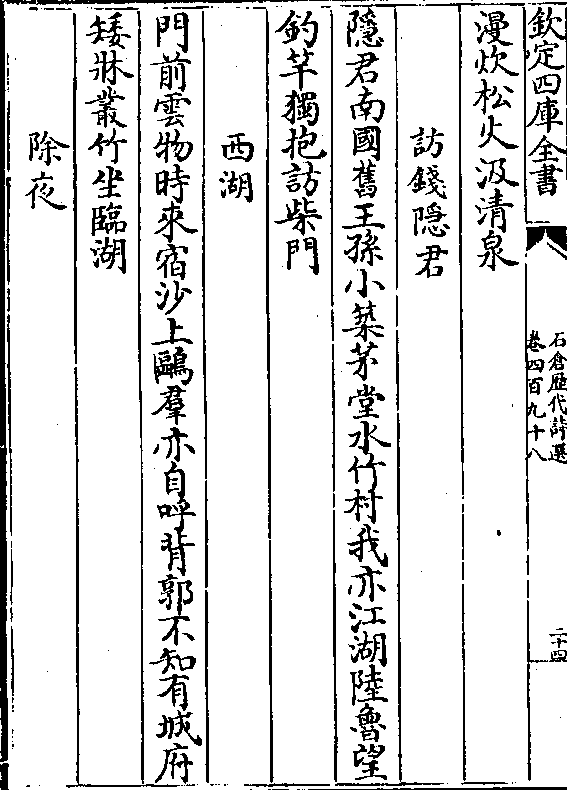 欽定四庫全書
石倉歷代詩選
卷四百九十八
二十四
漫炊松火汲清泉
訪錢隱君
隱君南國舊王孫小築茅堂水竹村我亦江湖陸魯望
釣竿獨抱訪柴門
西湖
門前雲物時來宿沙上鷗羣亦自呼背郭不知有城府
矮牀叢竹坐臨湖
除夜